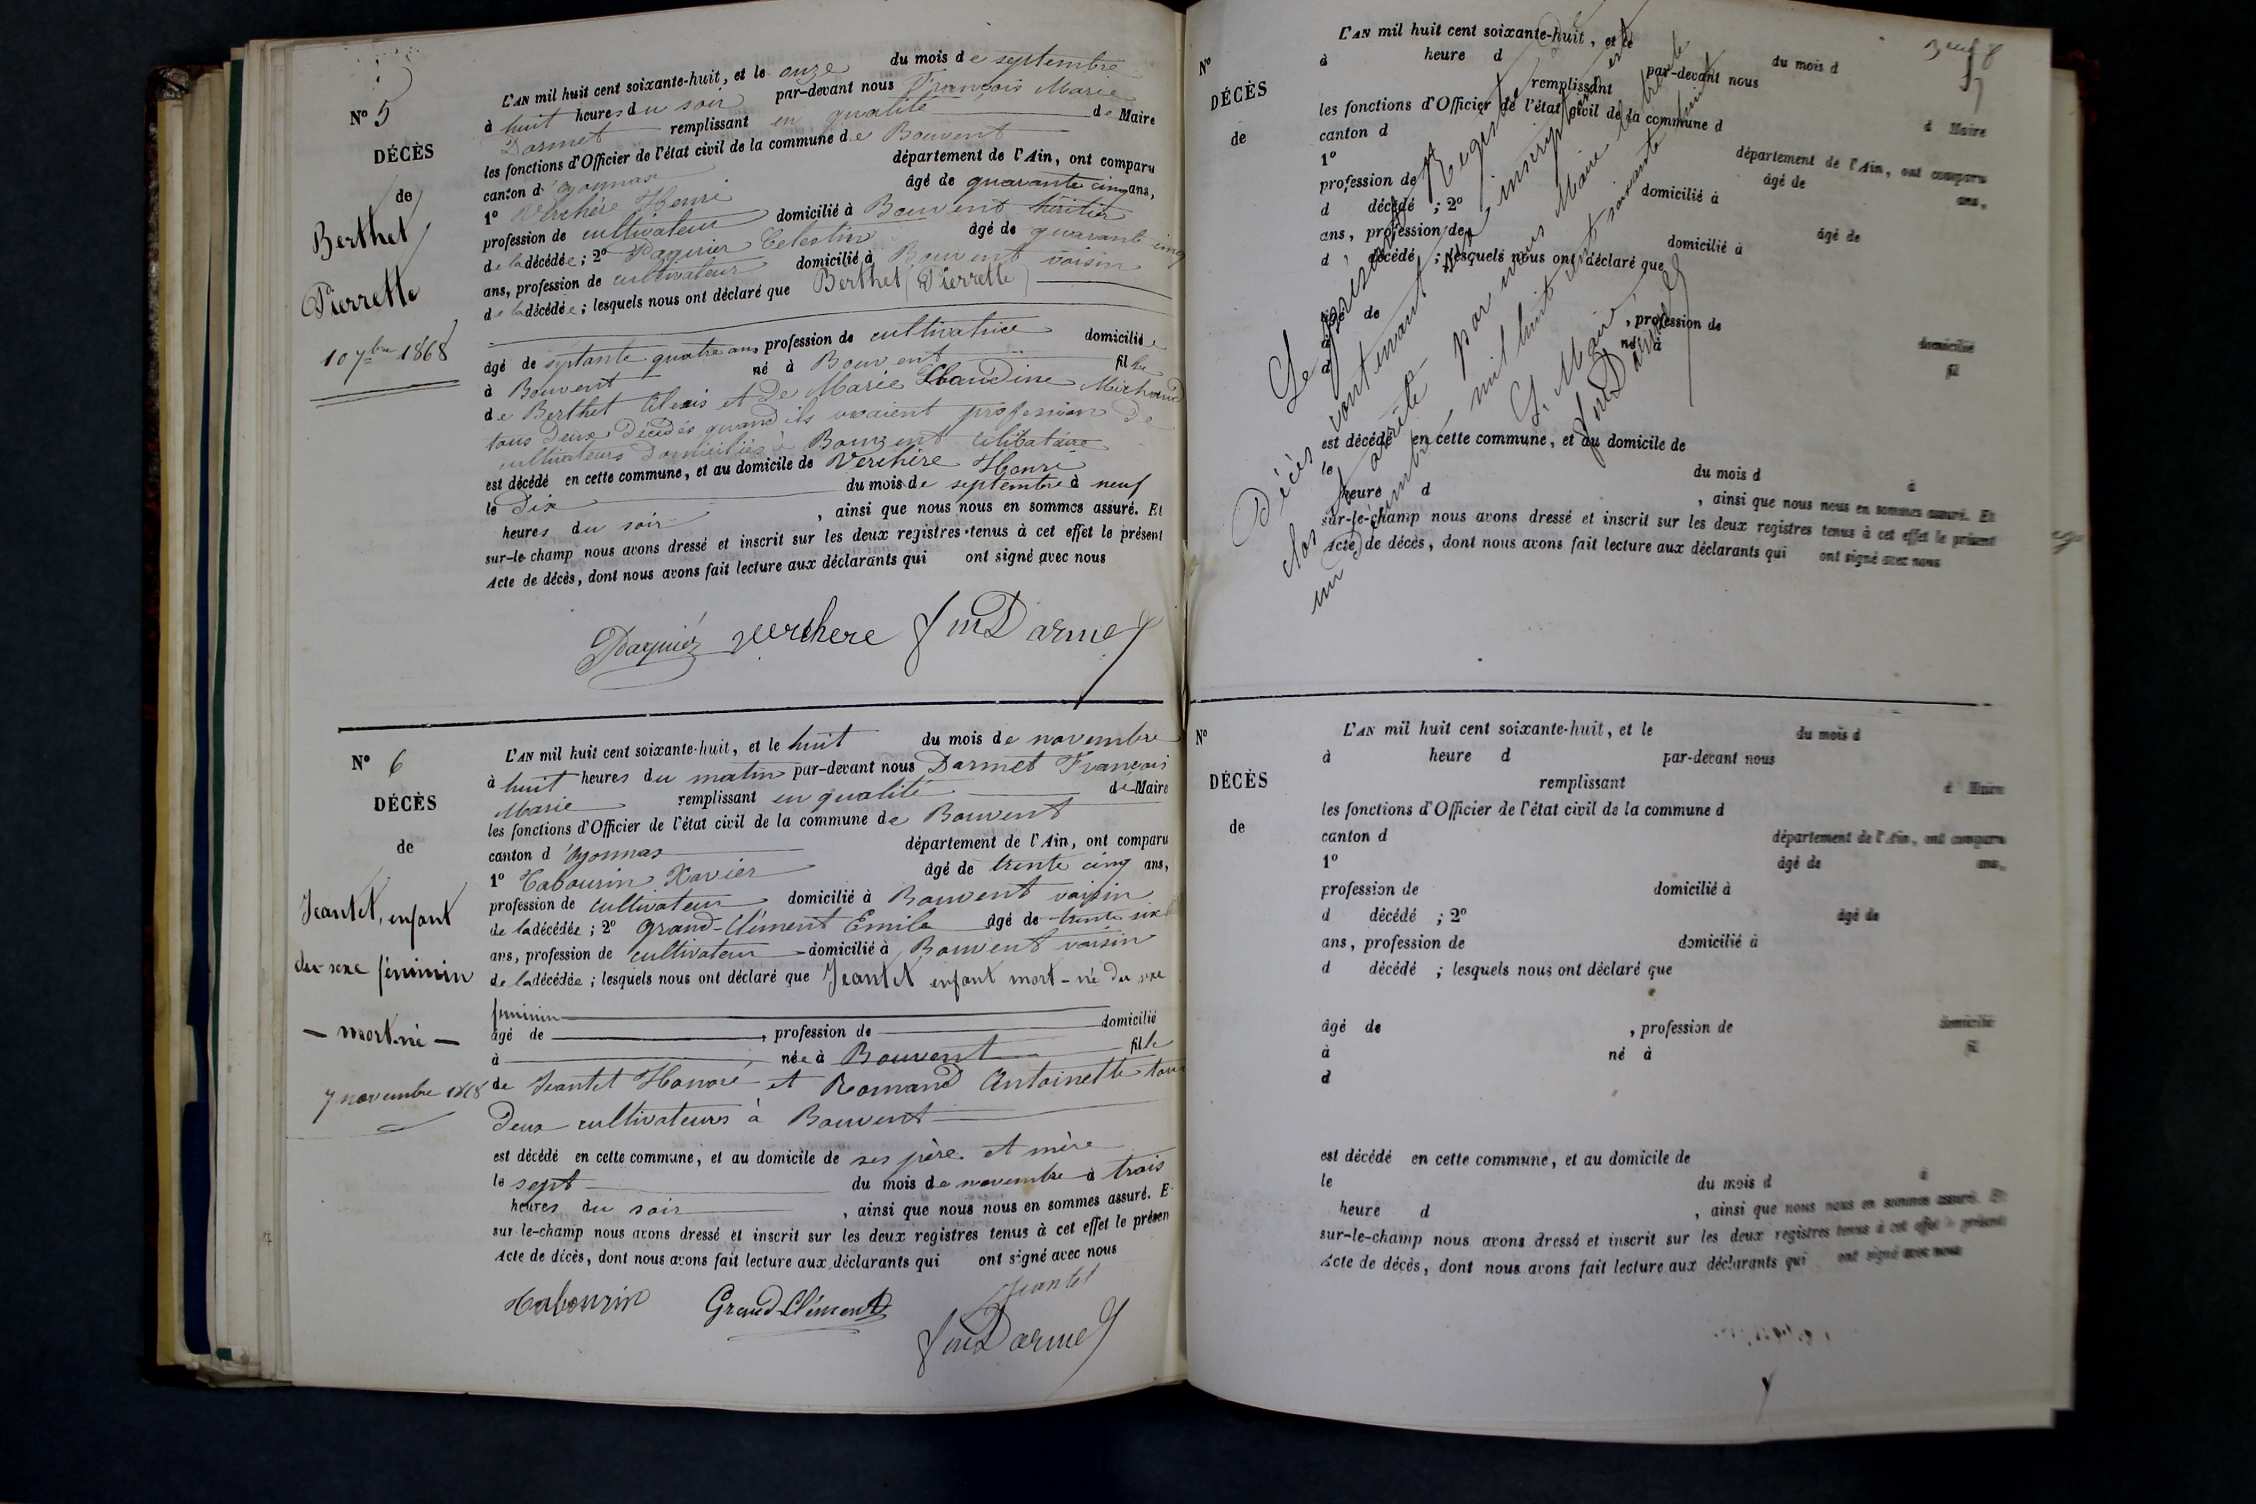 N° 5
DÉCÈS
de
Berthet
Pierrette
10 7bre 1868
L'AN mil huit cent soixante-huit, et le onze du mois de septembre
à huit heures du soir par-devant nous François Marie
Darmet remplissant en qualité de Maire
les fonctions d'Officier de l'état civil de la commune de Bouvent
canton d'Oyonnax département de l'Ain, ont comparu
1° Verchère Henri âgé de quarante cinq ans,
profession de cultivateur domicilié à Bouvent héritier
de la décédée ; 2° Paquier Celestin âgé de quarante cinq
ans, profession de cultivateur domicilié à Bouvent voisin
de la décédée ; lesquels nous ont déclaré que Berthet (Pierrette)
âgé de septante quatre ans profession de cultivatrice domiciliée
à Bouvent né à Bouvent fille
de Berthet Alexis et de Marie Claudine Michaud
tous deux décédés quand ils vivaient profession de
cultivateurs domiciliés à Bouvent célibataire
est décédé en cette commune, et au domicile de Verchère Henri
le dix du mois de septembre à neuf
heures du soir , ainsi que nous nous en sommes assuré. Et
sur-le-champ nous avons dressé et inscrit sur les deux registres tenus à cet effet le présent
Acte de décès, dont nous avons fait lecture aux déclarants qui ont signé avec nous
Paquier verchere fm Darmet
N° 6
DÉCÈS
de
Jeantet, enfant
du sexe féminin
— mort-né —
7 novembre 1868
L'AN mil huit cent soixante-huit, et le huit du mois de novembre
à huit heures du matin par-devant nous Darmet François
Marie remplissant en qualité de Maire
les fonctions d'Officier de l'état civil de la commune de Bouvent
canton d'Oyonnax département de l'Ain, ont comparu
1° Tabourin Xavier âgé de trente cinq ans,
profession de cultivateur domicilié à Bouvent voisin
de la décédée ; 2° Grand-Clément Emile âgé de trente six
ans, profession de cultivateur domicilié à Bouvent voisin
de la décédée ; lesquels nous ont déclaré que Jeantet enfant mort-né du sexe
féminin
âgé de , profession de domicilié
à née à Bouvent fille
de Jeantet Honoré et Romand Antoinette tous
deux cultivateurs à Bouvent
est décédé en cette commune, et au domicile de ses père et mère
le sept du mois de novembre à trois
heures du soir , ainsi que nous nous en sommes assuré. E
sur-le-champ nous avons dressé et inscrit sur les deux registres tenus à cet effet le présen
Acte de décès, dont nous avons fait lecture aux déclarants qui ont signé avec nous
Tabourin Grand-Clément Jeantet
fm Darmet
N°
DÉCÈS
de
L'AN mil huit cent soixante-huit, et le du mois d
à heure d par-devant nous
remplissant d Maire
les fonctions d'Officier de l'état civil de la commune d
canton d département de l'Ain, ont comparu
1° âgé de ans,
profession de domicilié à
d décédé ; 2° âgé de
ans, profession de domicilié à
d décédé ; lesquels nous ont déclaré que
âgé de , profession de domicilié
à né à fil
d
est décédé en cette commune, et au domicile de
le du mois d à
heure d , ainsi que nous nous en sommes assuré. Et
sur-le-champ nous avons dressé et inscrit sur les deux registres tenus à cet effet le présent
Acte de décès, dont nous avons fait lecture aux déclarants qui ont signé avec nous
Le présent Registre de
Décès contenant six inscriptions est
clos et arrêté par nous Maire le trente
un décembre mil huit cent soixante huit
L. Maire
fm Darmet
N°
DÉCÈS
de
L'AN mil huit cent soixante-huit, et le du mois d
à heure d par-devant nous
remplissant d Maire
les fonctions d'Officier de l'état civil de la commune d
canton d département de l'Ain, ont comparu
1° âgé de ans,
profession de domicilié à
d décédé ; 2° âgé de
ans, profession de domicilié à
d décédé ; lesquels nous ont déclaré que
âgé de , profession de domicilié
à né à fil
d
est décédé en cette commune, et au domicile de
le du mois d à
heure d , ainsi que nous nous en sommes assuré. Et
sur-le-champ nous avons dressé et inscrit sur les deux registres tenus à cet effet le présent
Acte de décès, dont nous avons fait lecture aux déclarants qui ont signé avec nous